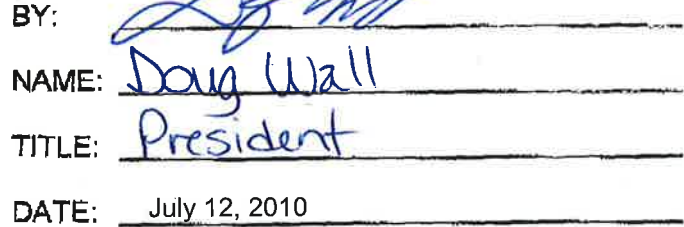 BY:
NAME: Doug Wall
TITLE: President
DATE: July 12, 2010